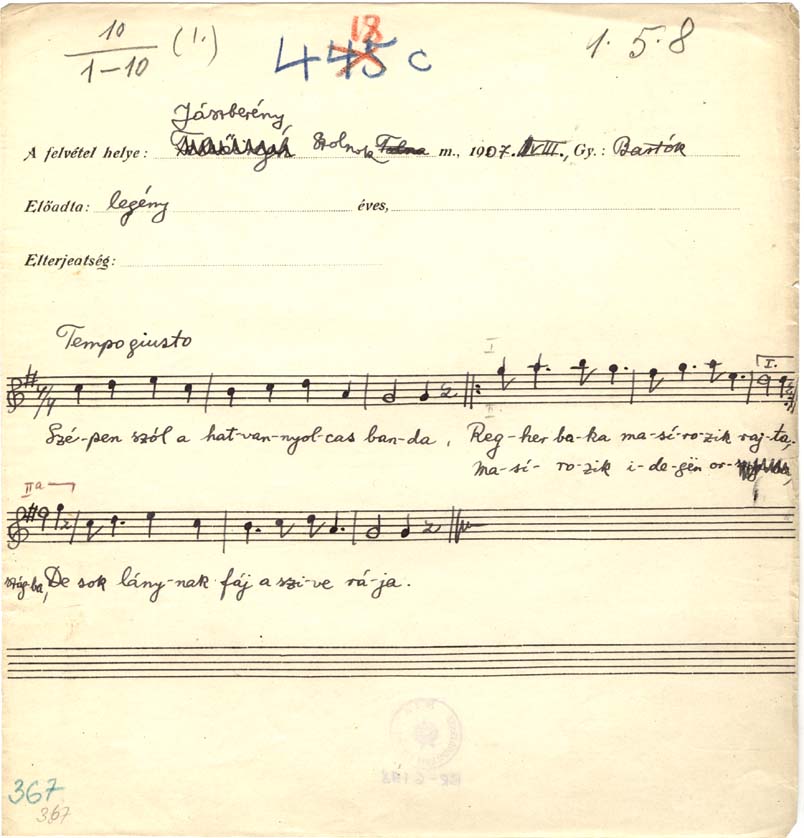 10
1-10 (1.)
18
445 c
1. 5. 8
Jászberény,
A felvétel helye: Szolnok Tolna m., 1907. VIII., Gy.: Bartók
Előadta: legény éves,
Elterjeatség:
Tempo giusto
I
I.
Szé-pen szól a hat-van-nyol-cas ban-da, Reg-her ba-ka ma-sí-ro-zik raj-ta,
II.
ma-sí-ro-zik i-de-gën or-
IIa
szág-ba, De sok lány-nak fáj a szi-ve rá-ja.
367
367